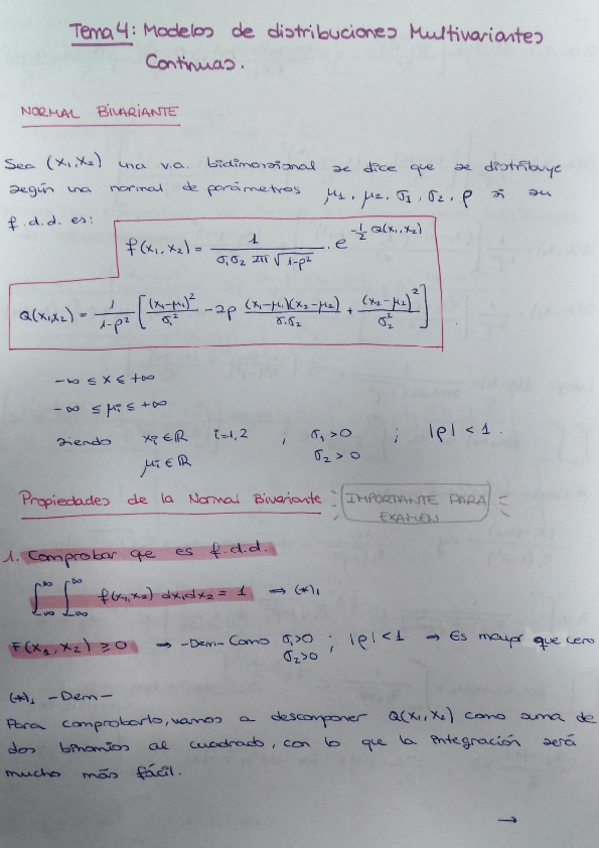 Tema 4: Modelos de distribuciones Multivariantes
Continuas.
NORMAL BIVARIANTE
Sea (x₁,x₂) una v.a. bidimensional se dice que se distribuye
según una normal de parámetros μ₁, μ₂, σ₁, σ₂, ρ si su
f.d.d. es:
f(x₁,x₂) = 1/(σ₁σ₂ 2π √(1-ρ²)) · e^(-1/2 Q(x₁,x₂))
Q(x₁,x₂) = 1/(1-ρ²) [(x₁-μ₁)²/σ₁² - 2ρ (x₁-μ₁)(x₂-μ₂)/(σ₁σ₂) + (x₂-μ₂)²/σ₂²]
-∞ ≤ x ≤ +∞
-∞ ≤ μi ≤ +∞
siendo xi ∈ ℝ i=1,2 ; σ₁>0 ; |ρ| < 1.
μi ∈ ℝ σ₂>0
Propiedades de la Normal Bivariante
IMPORTANTE PARA
EXAMEN
1. Comprobar que es f.d.d.
∫_{-∞}^{∞} ∫_{-∞}^{∞} f(x₁,x₂) dx₁dx₂ = 1 → (*)₁
F(x₁,x₂) ≥ 0 → -Dem- Como σ₁>0 ; |ρ|<1 → Es mayor que cero
σ₂>0
(*)₁ -Dem-
Para comprobarlo, vamos a descomponer Q(x₁,x₂) como suma de
dos binomios al cuadrado, con lo que la integración será
mucho más fácil.
→